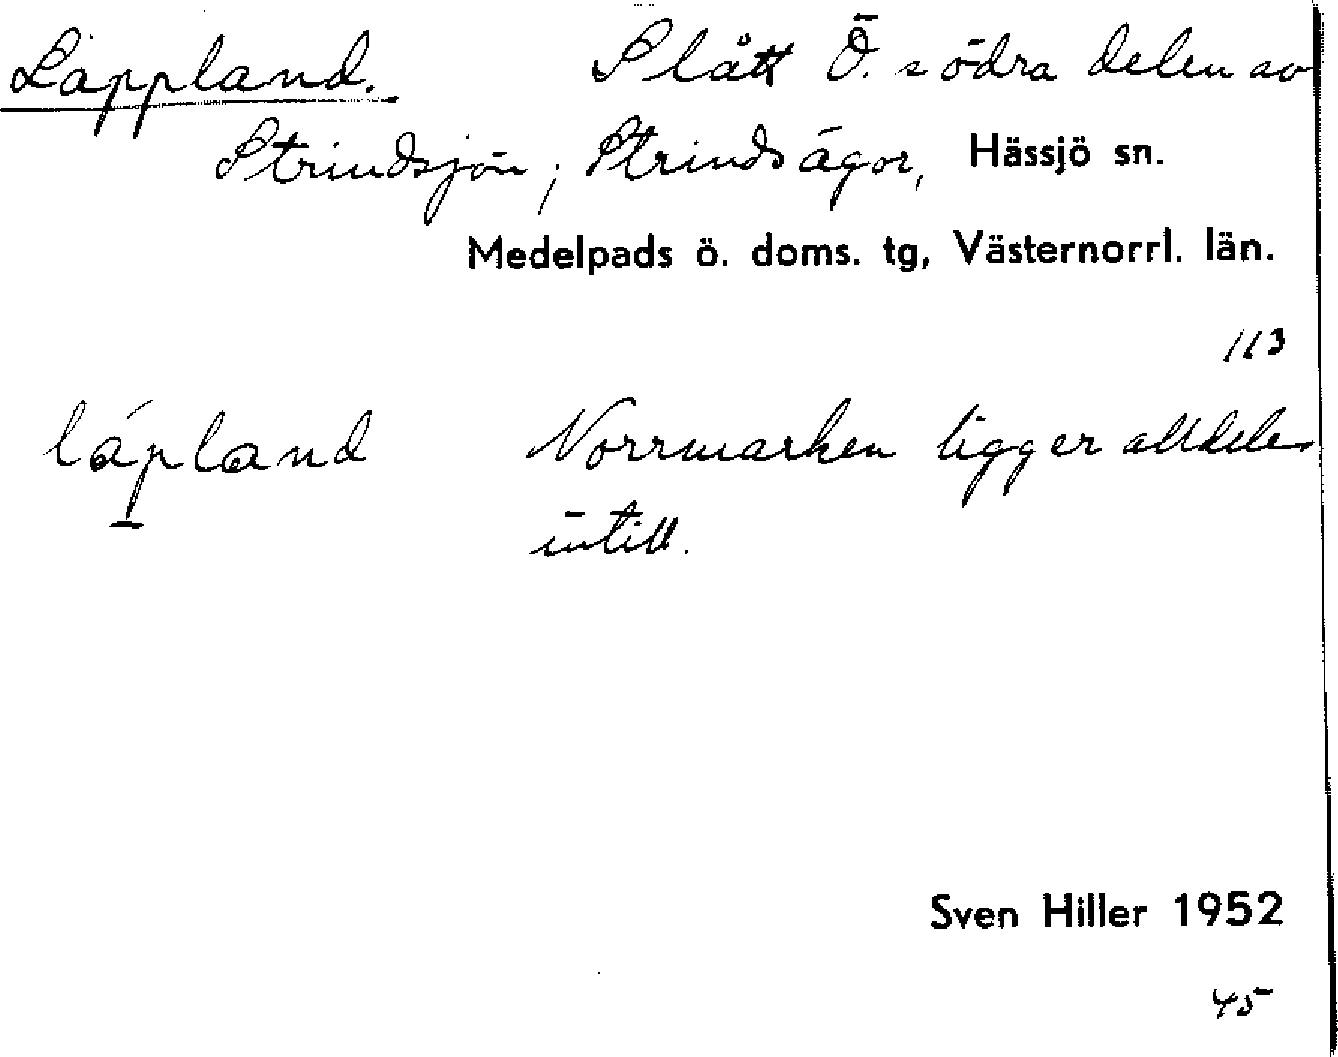 Lappland. Slått Ö. södra delen av
Strindsjön; Strinds ägor, Hässjö sn.
Medelpads ö. doms. tg, Västernorrl. län.
113
lápland Norrmarken ligger alldeles
intill.
Sven Hiller 1952
45